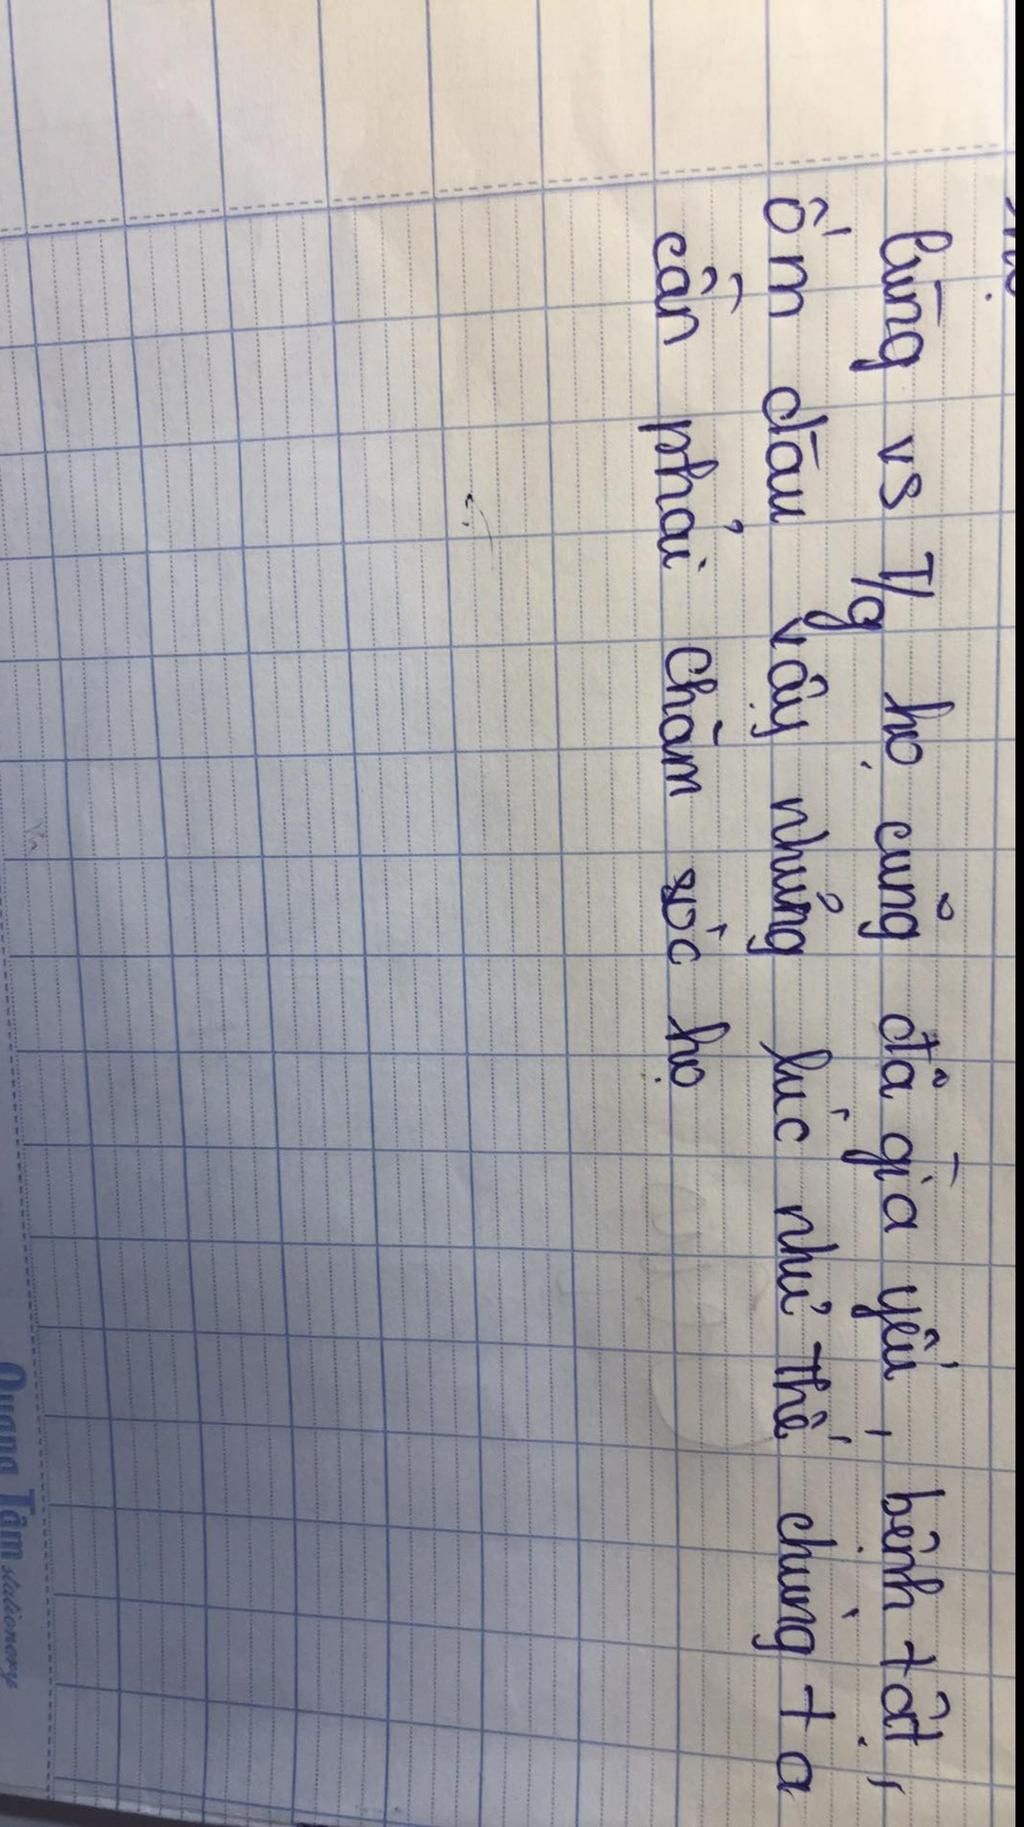 lùng vs T/g họ cũng đã già yếu, bệnh tật,
ốm đau vậy những lúc như thế chúng ta
cần phải chăm sóc họ
Quang Tâm stationery